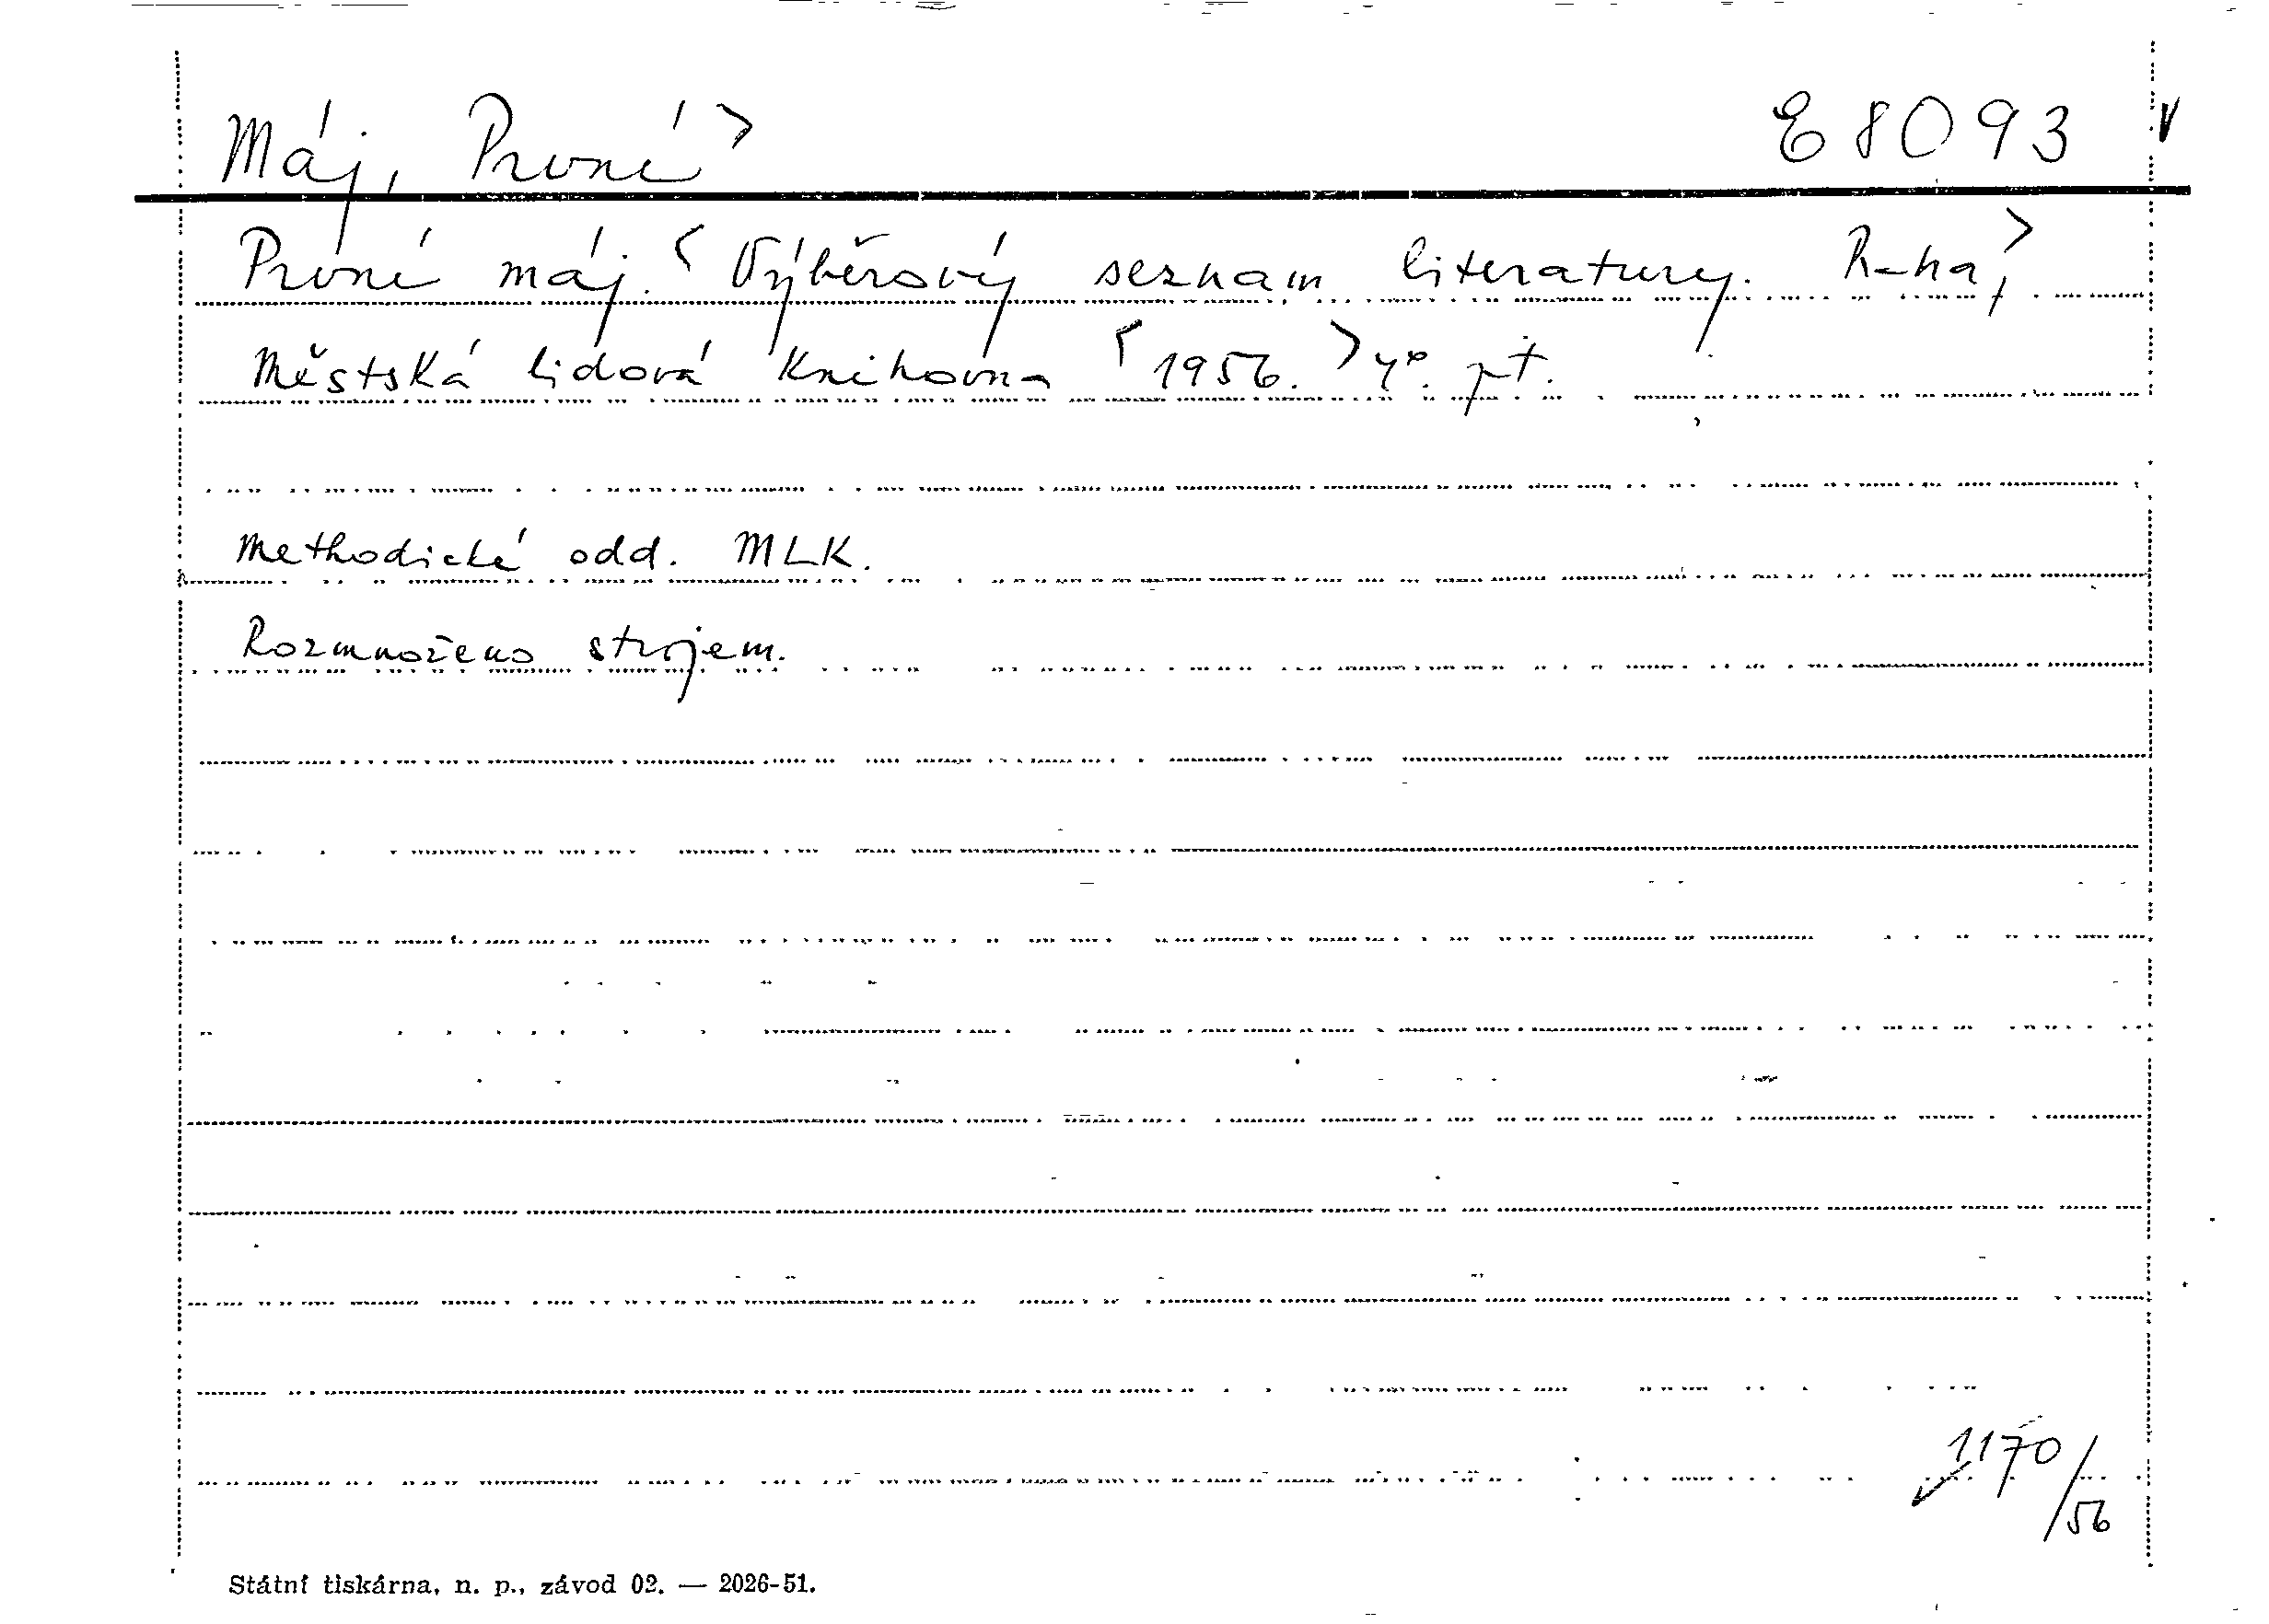 Máj, První > E 8093 v
První máj. < Výběrový seznam literatury. P-ha, >
Městská lidová knihovna < 1956. > 4°. př.
Methodické odd. MLK.
Rozmnoženo strojem.
1170/56
Státní tiskárna, n. p., závod 02. — 2026-51.